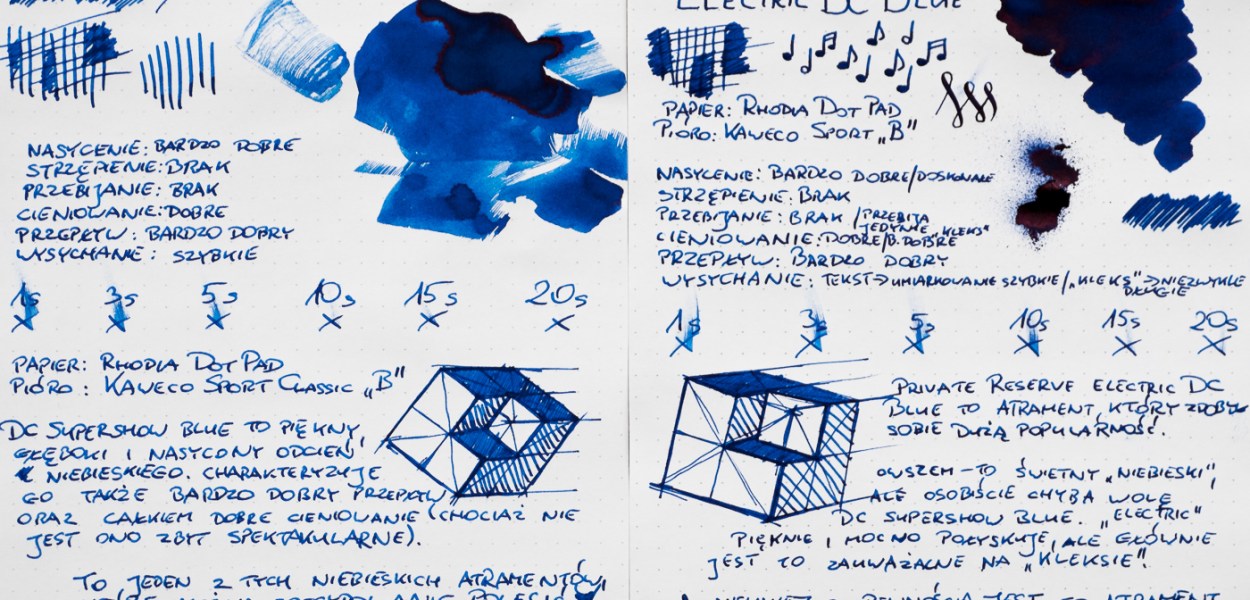 NASYCENIE: BARDZO DOBRE
STRZĘPIENIE: BRAK
PRZEBIJANIE: BRAK
CIENIOWANIE: DOBRE
PRZEPŁYW: BARDZO DOBRY
WYSYCHANIE: SZYBKIE
1s 3s 5s 10s 15s 20s
PAPIER: RHODIA DOT PAD
PIÓRO: KAWECO SPORT CLASSIC „B"
DC SUPERSHOW BLUE TO PIĘKNY,
GŁĘBOKI I NASYCONY ODCIEŃ
NIEBIESKIEGO. CHARAKTERYZUJE
GO TAKŻE BARDZO DOBRY PRZEPŁYW
ORAZ CAŁKIEM DOBRE CIENIOWANIE (CHOCIAŻ NIE
JEST ONO ZBYT SPEKTAKULARNE).
TO JEDEN Z TYCH NIEBIESKICH ATRAMENTÓW,
ELECTRIC DC BLUE
PAPIER: RHODIA DOT PAD
PIÓRO: KAWECO SPORT „B"
NASYCENIE: BARDZO DOBRE/DOSKONAŁE
STRZĘPIENIE: BRAK
PRZEBIJANIE: BRAK /PRZEBIJA
JEDYNIE „KLEKS"
CIENIOWANIE: DOBRE/B. DOBRE
PRZEPŁYW: BARDZO DOBRY
WYSYCHANIE: TEKST → UMIARKOWANIE SZYBKIE/„KLEKS" → NIEZWYKLE
DŁUGIE
1s 3s 5s 10s 15s 20s
PRIVATE RESERVE ELECTRIC DC
BLUE TO ATRAMENT, KTÓRY ZDOBYŁ
SOBIE DUŻĄ POPULARNOŚĆ.
OWSZEM – TO ŚWIETNY „NIEBIESKI",
ALE OSOBIŚCIE CHYBA WOLĘ
DC SUPERSHOW BLUE. „ELECTRIC"
PIĘKNIE I MOCNO POŁYSKUJE, ALE GŁÓWNIE
JEST TO ZAUWAŻALNE NA „KLEKSIE".
JEST TO ATRAMENT